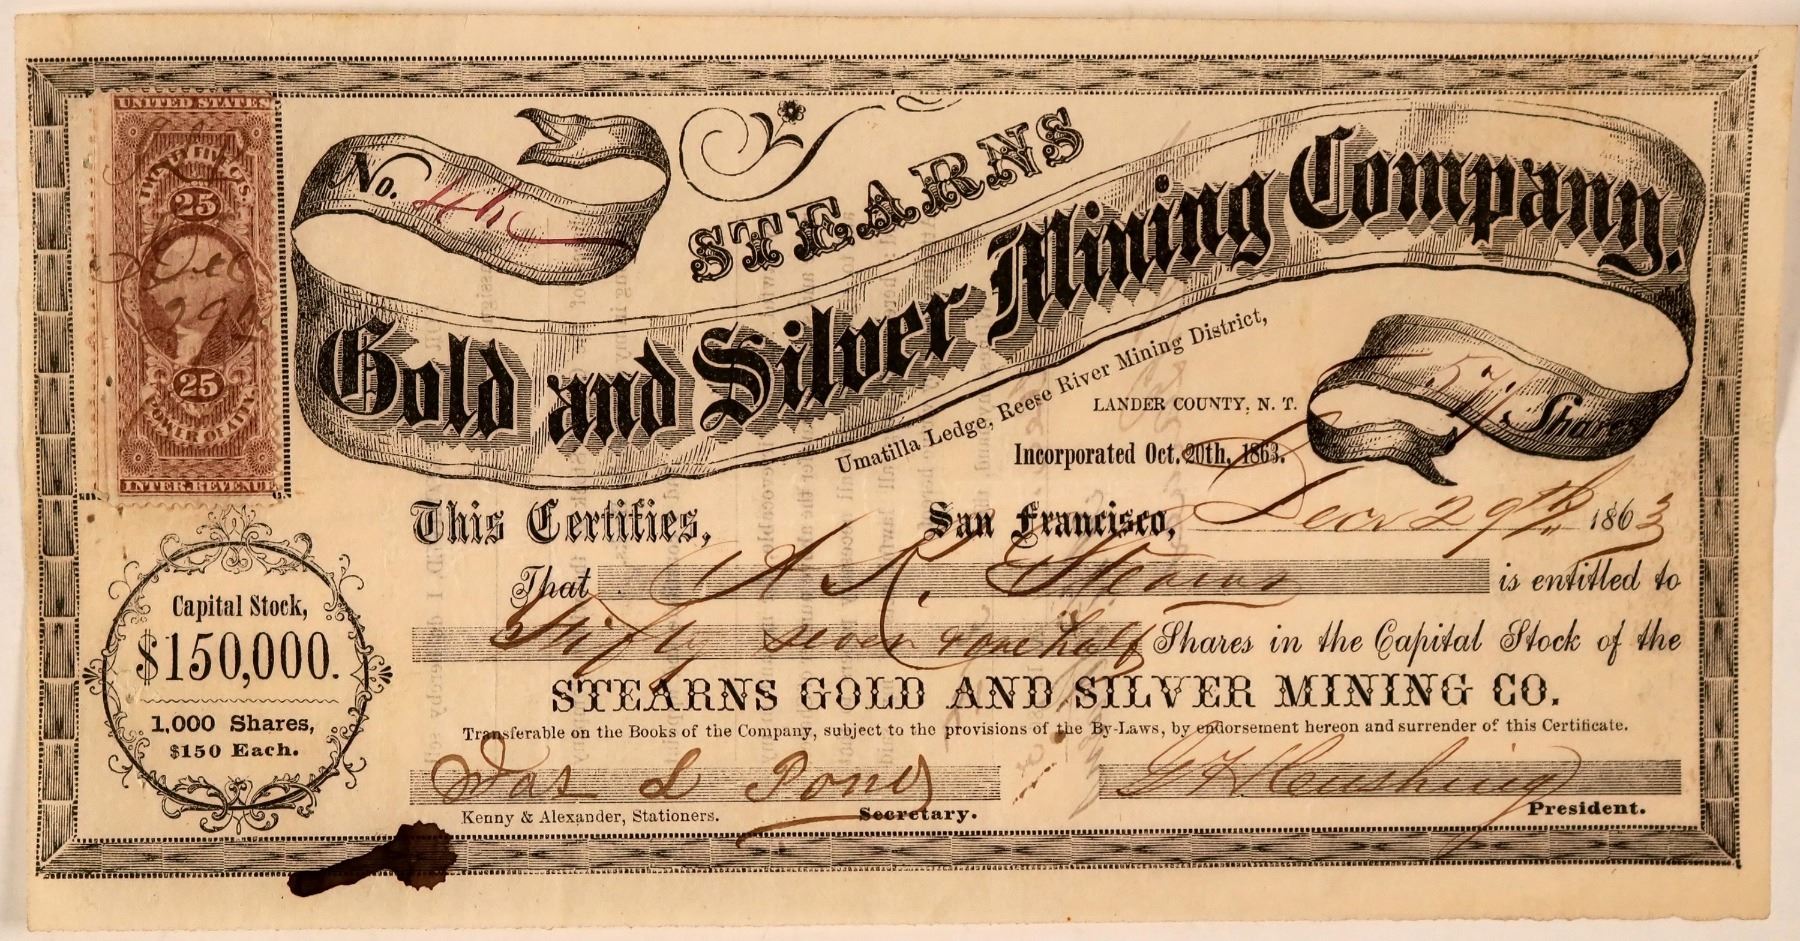 UNITED STATES
TWENTY FIVE CTS.
25
Dec
29
25
POWER OF ATT'Y.
INTER. REVENUE
No.
STEARNS
Gold and Silver Mining Company.
Umatilla Ledge, Reese River Mining District,
LANDER COUNTY, N. T.
Incorporated Oct. 20th, 1863.
57½ Shares
This Certifies,
San Francisco, Decr 29th 1863
That A K. Stearns is entitled to
Fifty seven & one half Shares in the Capital Stock of the
STEARNS GOLD AND SILVER MINING CO.
Transferable on the Books of the Company, subject to the provisions of the By-Laws, by endorsement hereon and surrender of this Certificate.
Capital Stock,
$150,000.
1,000 Shares,
$150 Each.
Jas L Pond
Secretary.
Kenny & Alexander, Stationers.
Cushing
President.